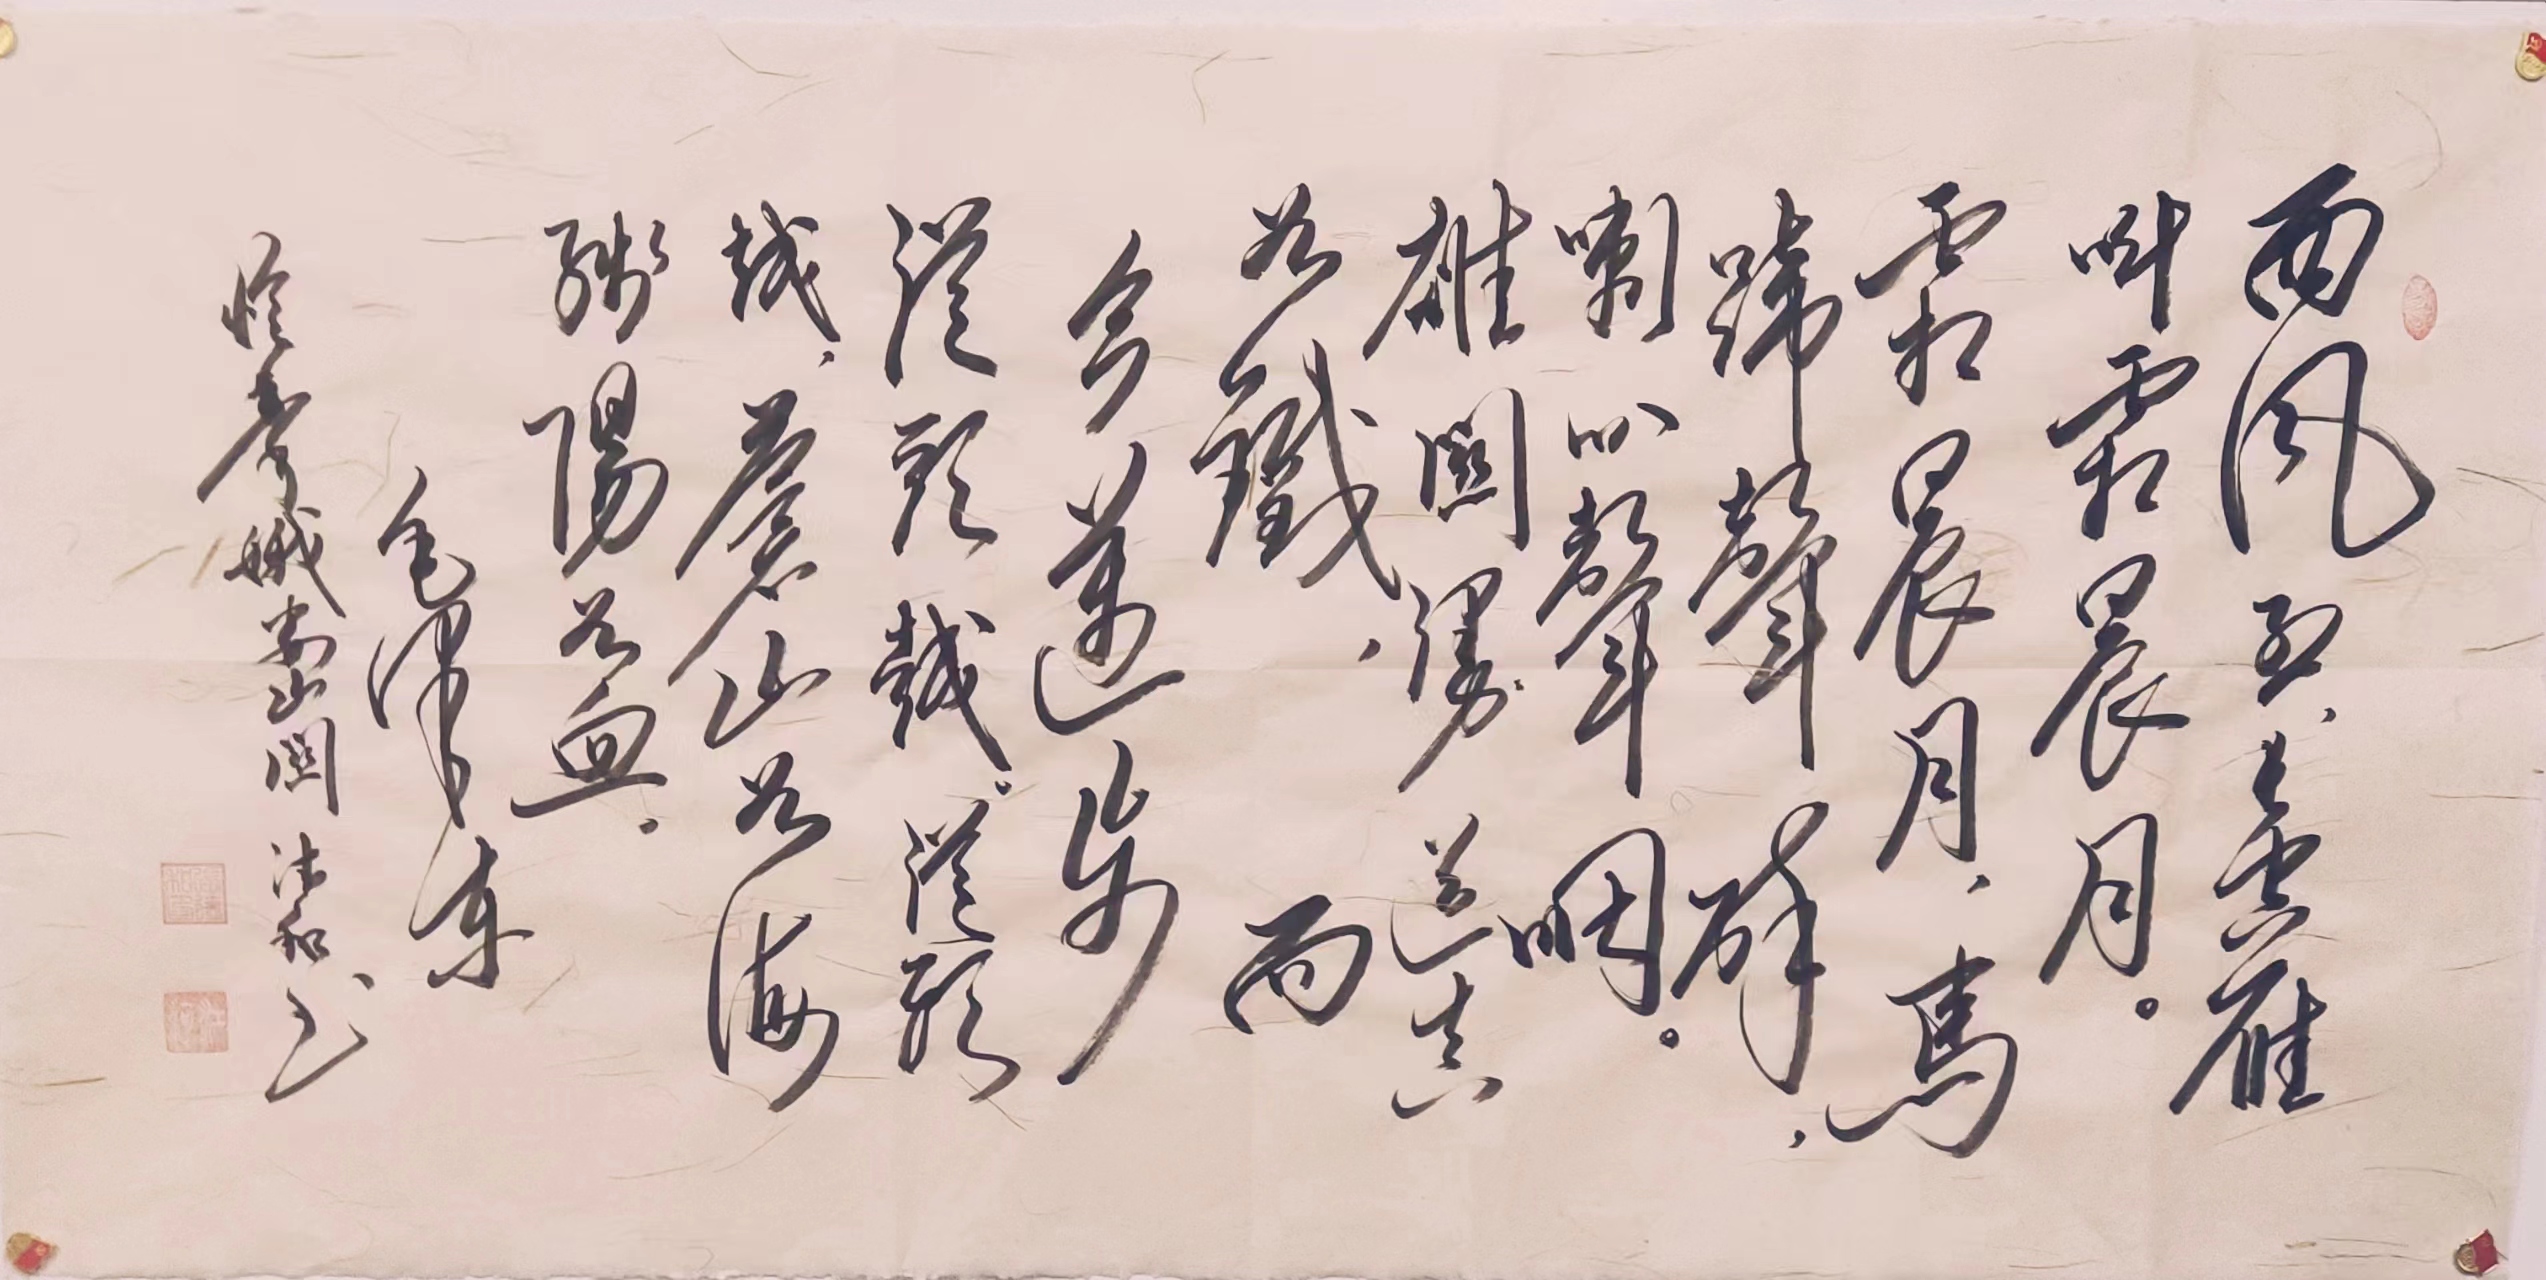 西风烈、長空雁
叫霜晨月。
霜晨月、馬
蹄聲碎、
喇叭聲咽。
雄關漫道真
如鐵、而
今邁步
從頭越。從頭
越、蒼山如海
殘陽如血。
毛澤东
憶秦娥娄山關 书